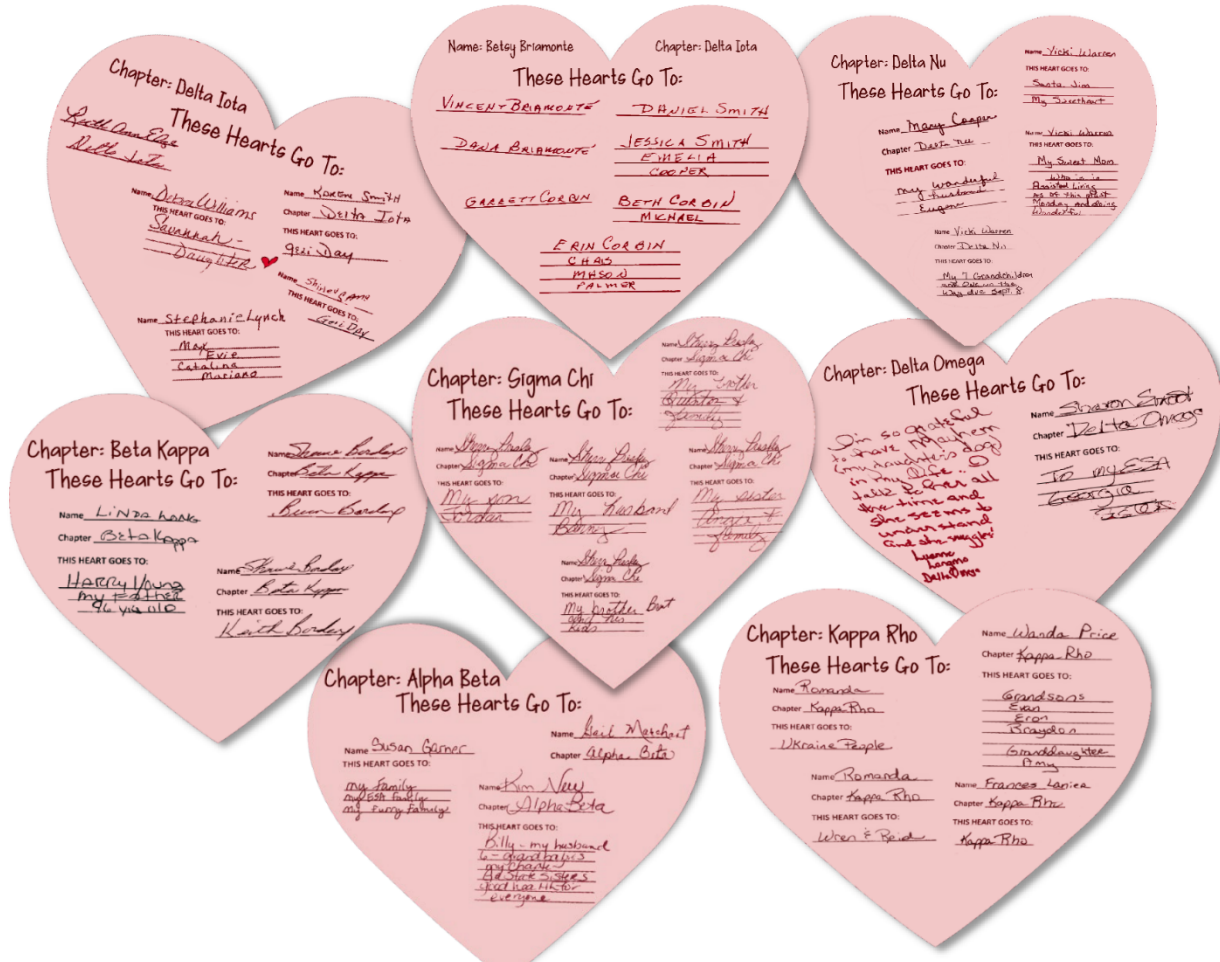 Chapter: Delta Iota
These Hearts Go To:
Ruth Ann Elge
Delta Iota
Name Debra Williams
THIS HEART GOES TO:
Savannah -
Daughter
Name Karen Smith
Chapter Delta Iota
THIS HEART GOES TO:
Geri Day
Name Shirley
THIS HEART GOES TO:
Geri Day
Name Stephanie Lynch
THIS HEART GOES TO:
Max
Evie
Catalina
Mariano
Name: Betsy Briamonte
Chapter: Delta Iota
These Hearts Go To:
VINCENT BRIAMONTE
DANIEL SMITH
DANA BRIAMONTE
JESSICA SMITH
EMELIA
COOPER
GARRETT CORBIN
BETH CORBIN
MICHAEL
ERIN CORBIN
CHAS
MASON
PALMER
Chapter: Delta Nu
These Hearts Go To:
Name Mary Cooper
Chapter Delta Nu
THIS HEART GOES TO:
my wonderful
husband
Eugene
Name Vicki Warren
THIS HEART GOES TO:
Santa Jim
My Sweetheart
Name Vicki Warren
THIS HEART GOES TO:
My Sweet Mom
Who is in
Assisted Living
as of this past
Monday and doing
Wonderful
Name Vicki Warren
Chapter Delta Nu
THIS HEART GOES TO:
My 7 Grandchildren
and One on the
Way due Sept. 8
Chapter: Beta Kappa
These Hearts Go To:
Name LINDA LANG
Chapter Beta Kappa
THIS HEART GOES TO:
HARRY Young
my FATHER
96 yrs old
Name
Chapter Beta Kappa
THIS HEART GOES TO:
Name
Chapter Beta Kappa
THIS HEART GOES TO:
Keith
Chapter: Sigma Chi
These Hearts Go To:
Name
Chapter Sigma Chi
THIS HEART GOES TO:
My brother
Quinton &
family
Name
Chapter Sigma Chi
THIS HEART GOES TO:
My son
Jordan
Name
Chapter Sigma Chi
THIS HEART GOES TO:
My husband
Name
Chapter Sigma Chi
THIS HEART GOES TO:
My sister
Angie &
family
Name
Chapter Sigma Chi
THIS HEART GOES TO:
My brother Brat
and his
kids
Chapter: Delta Omega
These Hearts Go To:
I'm so grateful
to have Mayhem
(my daughter's dog)
in my life. I
talk to her all
the time and
she seems to
understand
and she wiggles!
Luanne
Delta Omega
Name Sharon
Chapter Delta Omega
THIS HEART GOES TO:
To my ESA
Georgia
Chapter: Alpha Beta
These Hearts Go To:
Name Susan Garner
THIS HEART GOES TO:
my Family
my ESA Family
my Furry Family
Name Gail
Chapter Alpha Beta
Name Kim New
Chapter Alpha Beta
THIS HEART GOES TO:
Billy - my husband
6 - grandbabies
my Chapter
Ad State Sisters
good health for
everyone
Chapter: Kappa Rho
These Hearts Go To:
Name Romanda
Chapter Kappa Rho
THIS HEART GOES TO:
Ukraine People
Name Romanda
Chapter Kappa Rho
THIS HEART GOES TO:
Wren & Reid
Name Wanda Price
Chapter Kappa Rho
THIS HEART GOES TO:
Grandsons
Evan
Eron
Braydon
Granddaughter
Amy
Name Frances Lanier
Chapter Kappa Rho
THIS HEART GOES TO:
Kappa Rho